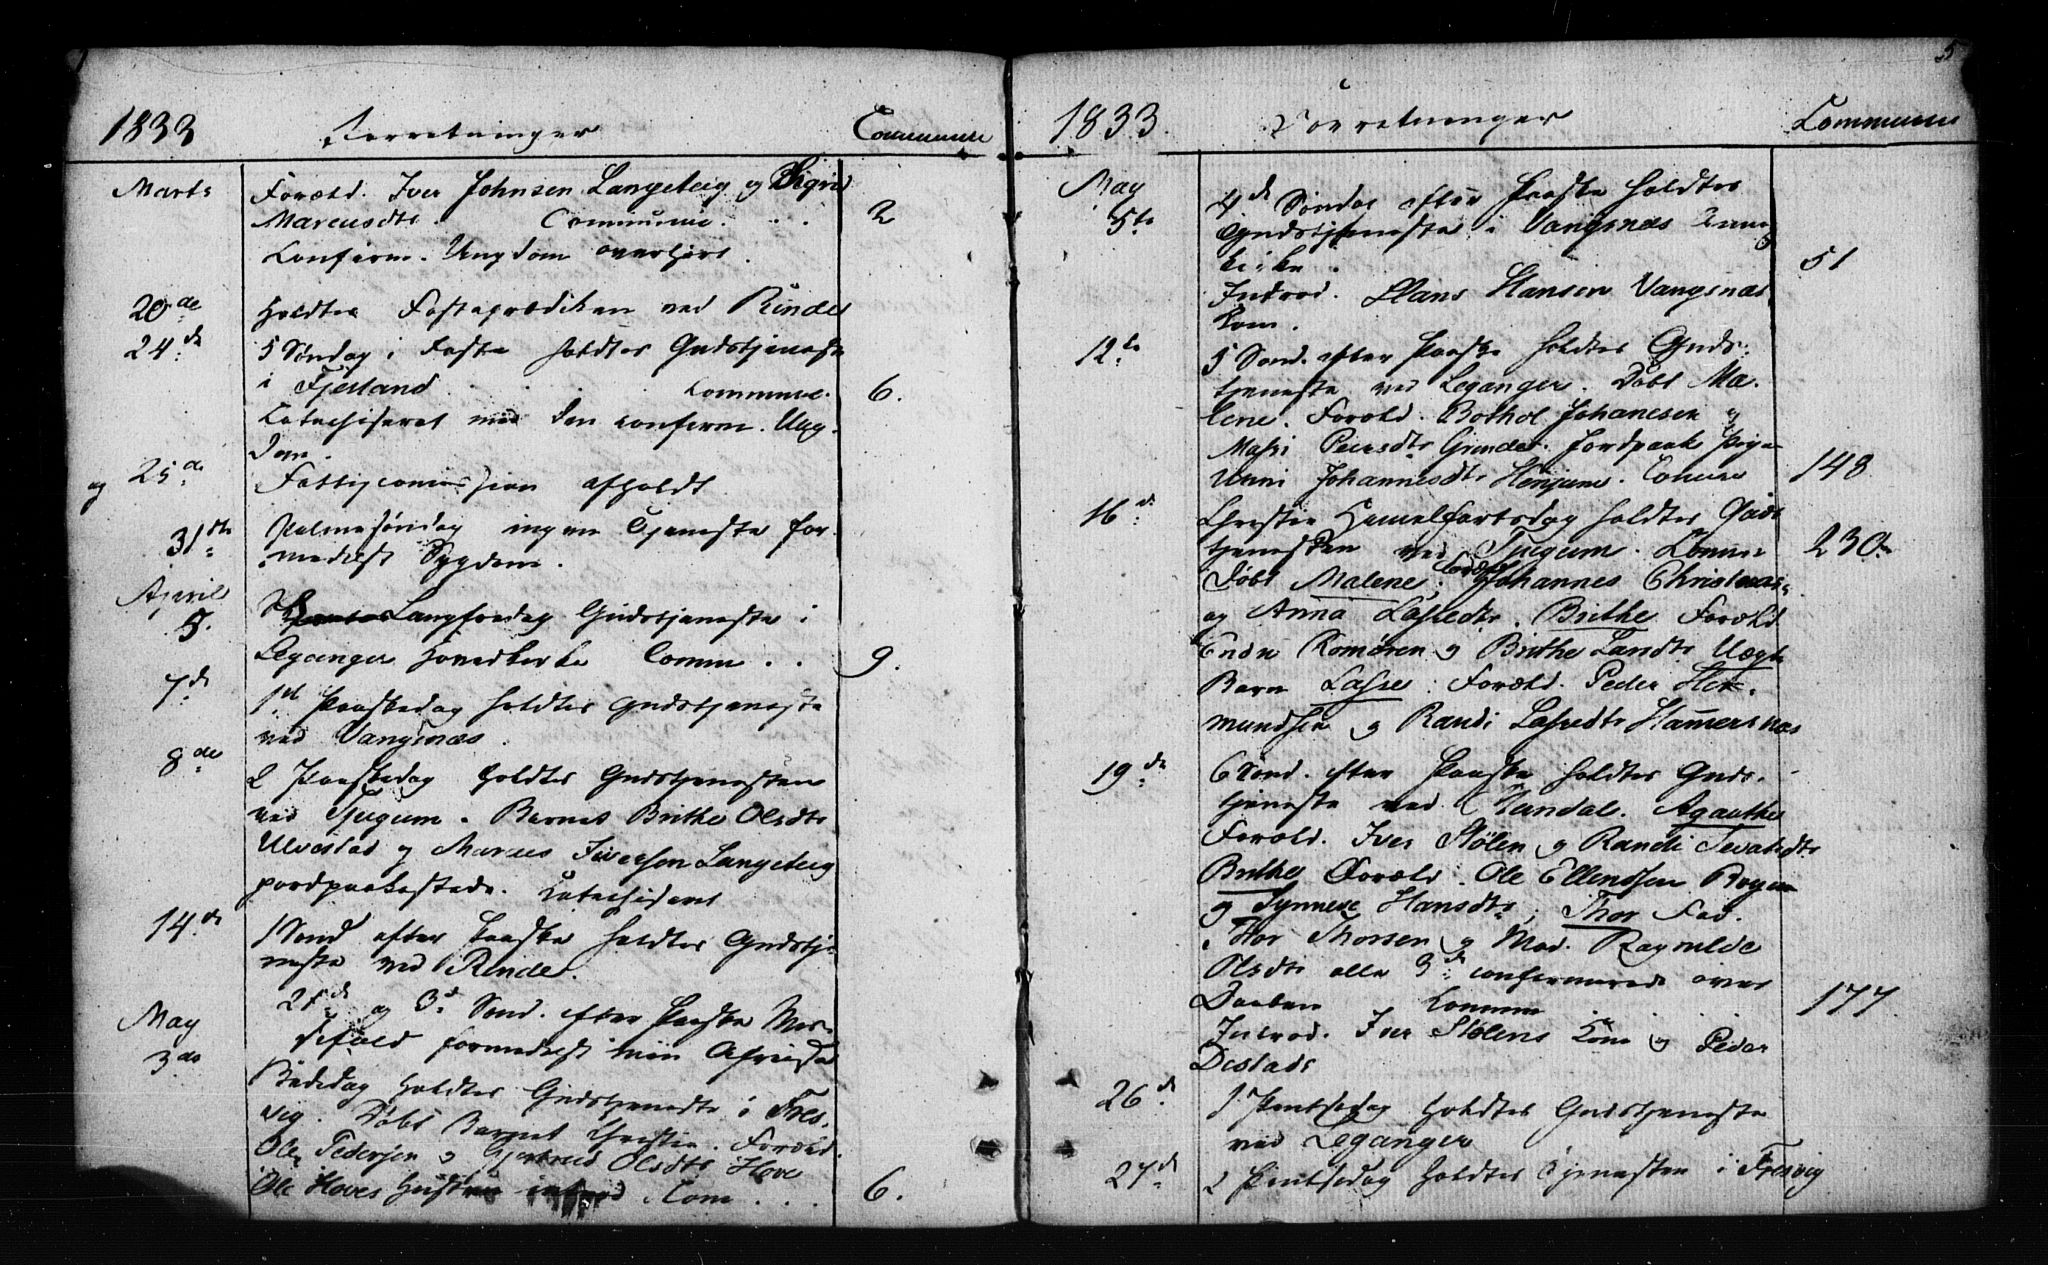 1833 Forretninger Communic
Marts Foræld. Iver Johnsen Langeteig og Sigrid
Marcusdtr Communic. . . 2
Confirm. Ungdom overhørt.
20de Holdtes Fasteprædiken ved Rinde
24de 5 Søndag i Faste holdtes Gudstjeneste
i Fjerland . . . Commun. 6.
Catechiseret med den confirm. Ung-
dom.
og 25de Fattigcomission afholdt
31te Palmesøndag ingen Tjeneste for-
medelst Sygdom.
April
5. Langfredag Gudstjeneste i
Leganger Hovedkirke Comm . . 9.
7de 1ste Paaskedag holdtes Gudstjeneste
ved Vangsnæs.
8de 2 Paaskedag holdtes Gudstjenesten
ved Tjugum. Børnes Brithe Olsdtr
Ulvestad og Marses Iversen Langeteig
Catechiseret
14de 1 Sønd efter Paaske holdtes Gudstje-
neste ved Rinde.
2den og 3de Sønd. efter Paaske Mes-
sefald formedelst min
May
3die Bededag holdtes Gudstjeneste i Fres-
vig. Døbt Barnet Christen. Foræld.
Ole Pedersen og Gjertrud Olsdtr Hove
Ole Hoves Hustrue introd Com . . . 6.
5
1833. Forretninger Communic
May
5te 4de Søndag efter Paaske holdtes
Gudstjeneste i Vangsnæs Annex
kirke. 51
Introd. Hans Hansen Vangsnæs
Kone.
12te 5 Sønd. efter Paaske holdtes Guds-
tjeneste ved Leganger. Døbt Ma-
lene. Foræld. Bothol Johanesen og
Pedersdtr Grinde. Pige
Unni Johannesdtr Henjum. Comm 148
16de Christi Himmelfartsdag holdtes Guds
tjenesten ved Tjugum. Comm 230.
Døbt Malene, Foræld Johannes Christens
og Anna Lassedtr. Brithe Foræld
Endre Romøren og Brithe Larsdtr Uægte
Barn Lasse: Foræld. Peder Her-
mundsen og Randi Lassedtr Hamersnæs
19de 6 Sønd. efter Paaske holdtes Guds-
tjeneste ved Sundal. Agaathe
Foræld. Iver Stølen og Randi
Brithe Foræld. Ole Ellendsen Bogen
og Synneve Hansdtr, Thor Fad.
Thor Thorsen og Mod. Ragnilde
Olsdtr alle 3de confirmerede over
Daaben Commun . . . 177.
Introd. Iver Stølens Kone og Peder
26de 1 Pintsedag holdtes Gudstjeneste
ved Leganger
27de 2 Pintsedag holdtes Tjenesten i Fresvig